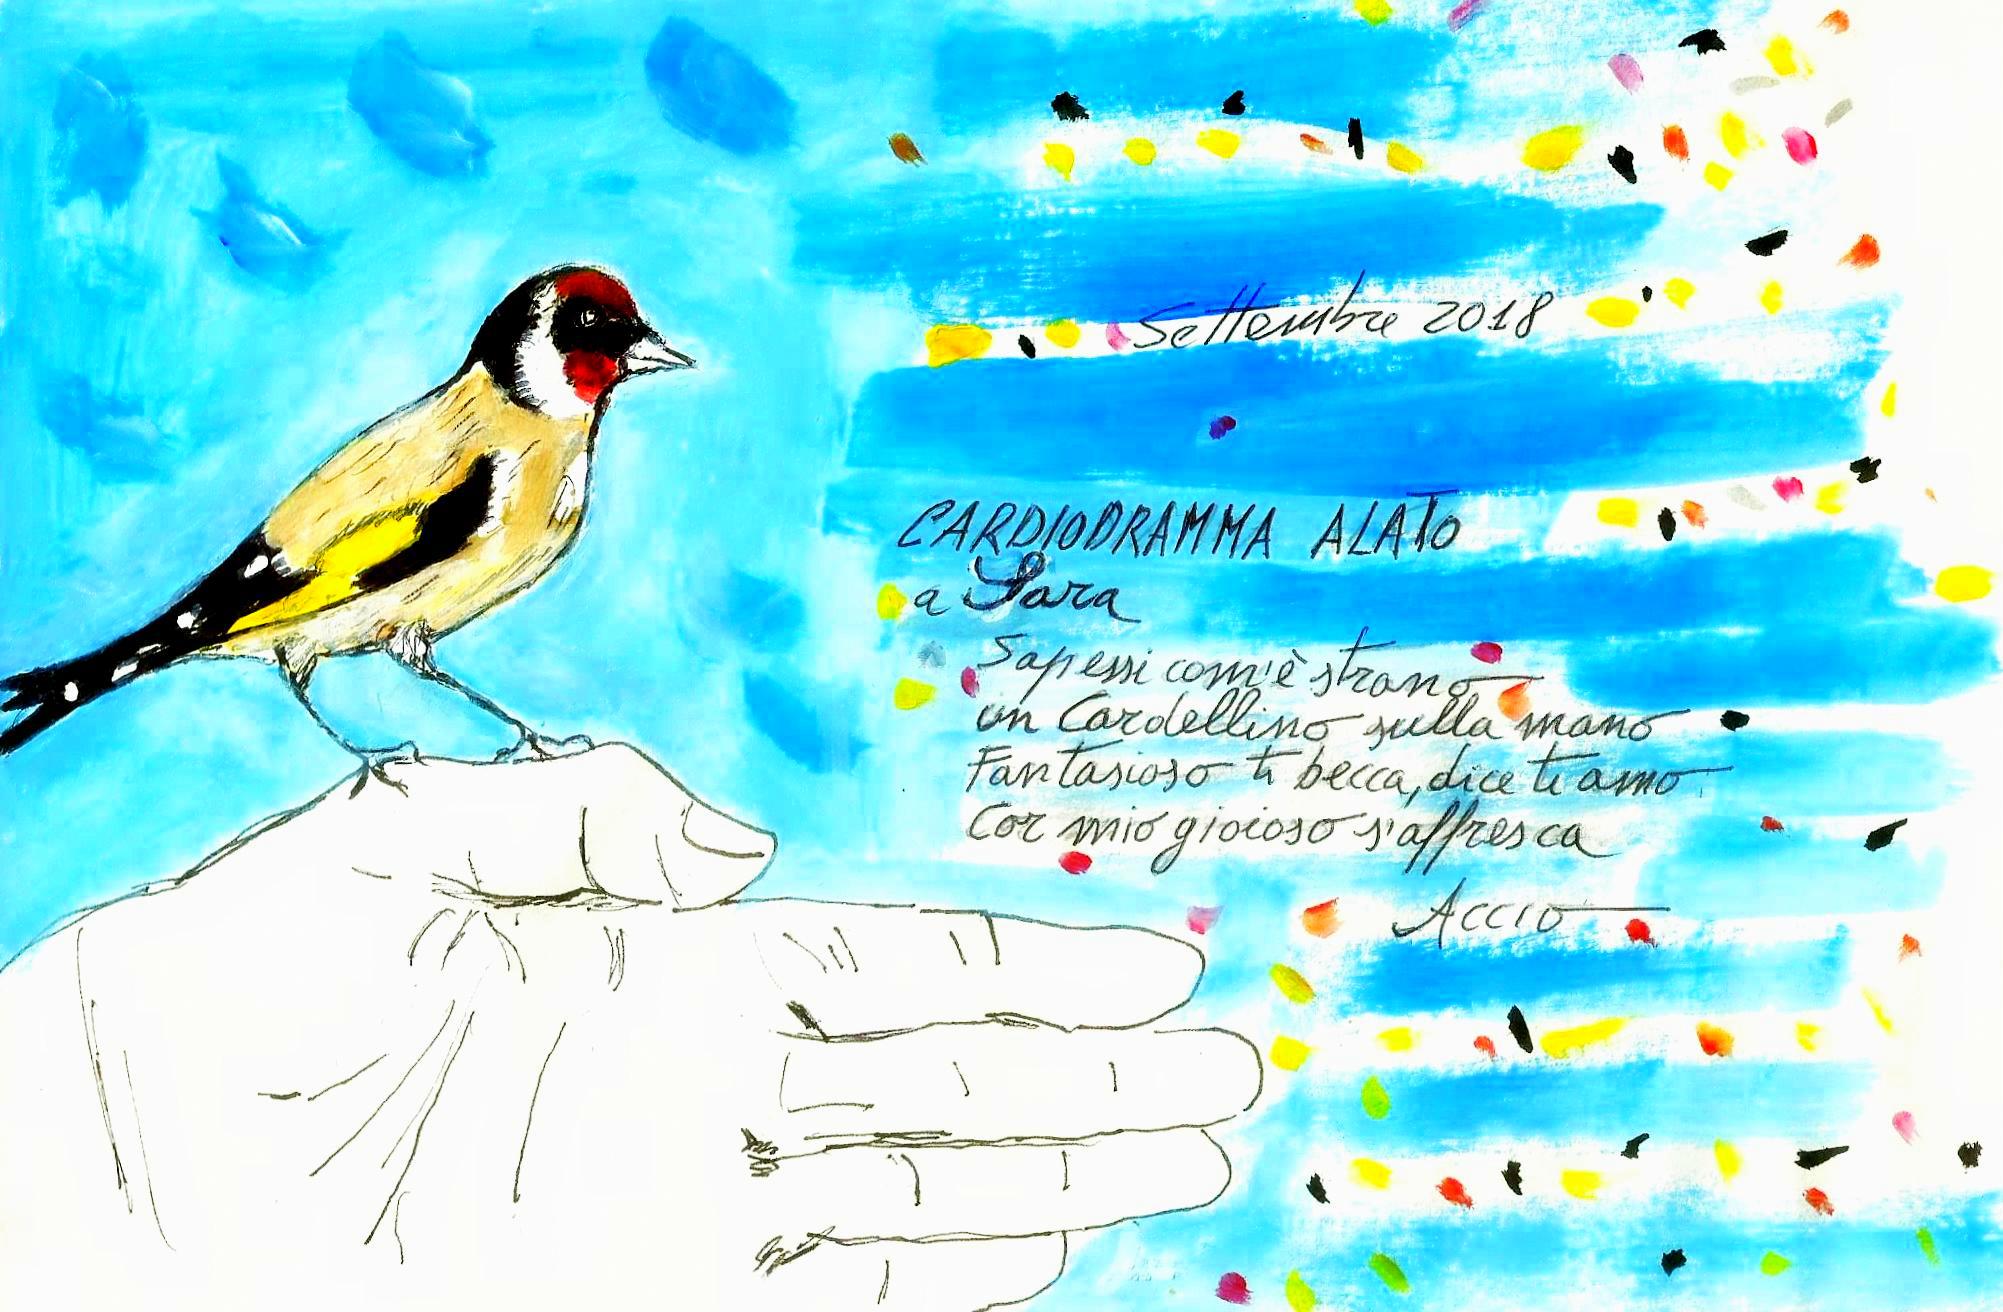 Settembre 2018
CARDIODRAMMA ALATO
a Sara
Sapessi com'è strano
un Cardellino sulla mano
Fantasioso ti becca, dice ti amo
Cor mio gioioso s'affresca
Accio